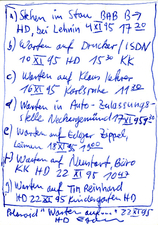 a) Stehen im Stau BAB B→
HD, bei Lehnin 4 XI 95 17 20
b) Warten auf Drucker/ISDN
10 XI 95 HD 15 30 KK
c) Warten auf Klaus
16 XI 95 Karlsruhe 11 20
d) Warten in Auto-Zulassungs-
stelle Neckargemünd 17 XI 95
e) Warten auf Edgar
Leimen 18 XI 95 1900
f) Warten auf Neustart, Büro
KK HD 22 XI 95 1047
g) Warten auf Tim Reinhard
HD 22 XI 95 Kindergarten HD
"Warten auf..." 22 XI 95
HD